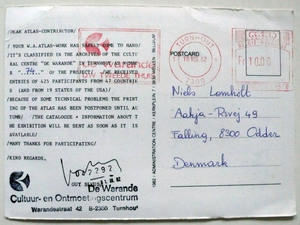 DEAR ATLAS-CONTRIBUTOR/
/ YOUR W.A.-ATLAS-WORK HAS SAFELY COME TO HAND/
IT'S CLASSIFIED IN THE ARCHIVES OF THE CULTU
RAL CENTRE "DE WARANDE" IN TURNHOUT AS NUMBER
"74" OF THE PROJECT/ /WE RECEIVED
ENTRIES OF 425 PARTICIPANTS FROM 47 COUNTRIE
S (AND FROM 19 STATES OF THE USA)/
BECAUSE OF SOME TECHNICAL PROBLEMS THE PRINT
ING OF THE ATLAS HAS BEEN POSTPONED UNTIL AU
TUMN/ /THE CATALOGUE + INFORMATION ABOUT T
HE EXHIBITION WILL BE SENT AS SOON AS IT IS
AVAILABLE/
/MANY THANKS FOR PARTICIPATING/
KIND REGARDS,
GUY
2292
De Warande
Cultuur- en Ontmoetingscentrum
Warandestraat 42 B-2300 Turnhout
Warande
UW TWEEDE THUIS
TURNHOUT
2300
POSTCARD
Niels Lomholt
Falling, 8300 Odder
Denmark